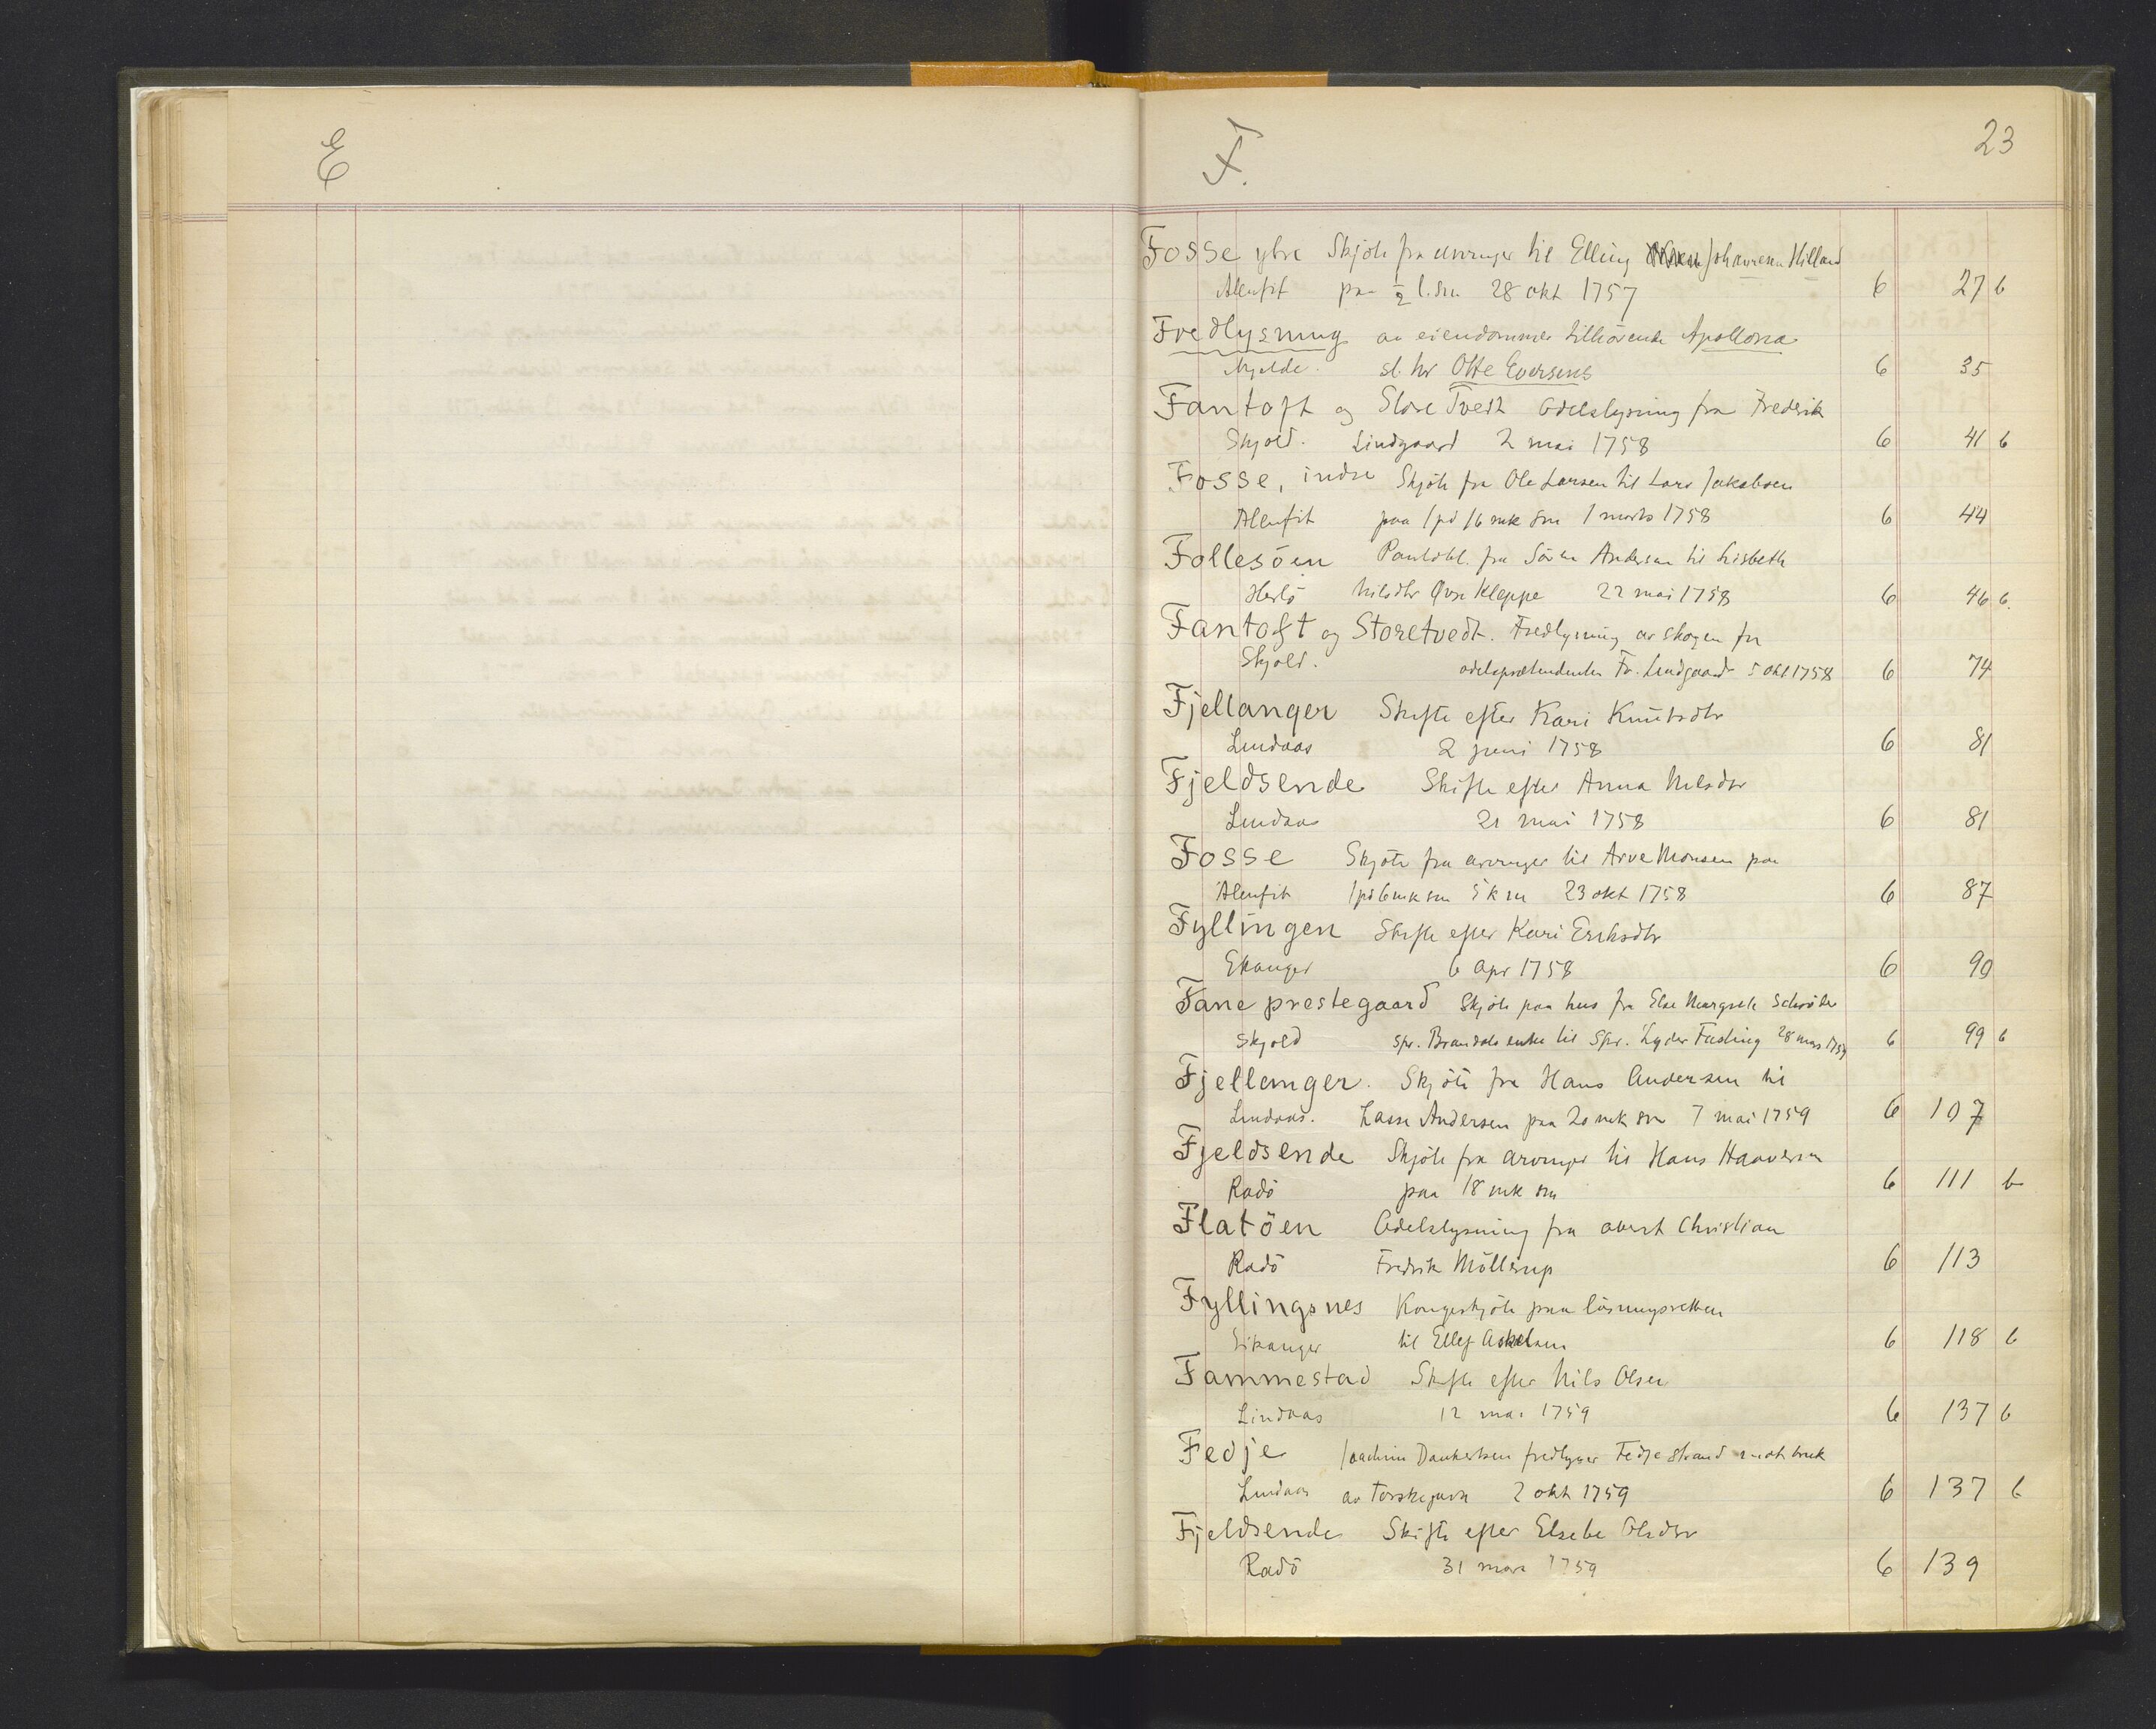 E
F.
23
Fosse ytre Skjöte fra arvinger til Elling Johannesen Hilland
Alenfit paa ½ l. sm 28 okt 1757 6 27 b
Fredlysning av eiendommer tilhörende Apollona
Mjelde. sl. hr Otte Eversens 6 35
Fantoft og Store Tvedt Odelslysning fra Fredrik
Skjold. Lindgaard 2 mai 1758 6 41 b
Fosse, indre Skjöte fra Ole Larsen til Lars Jakobsen
Alenfit paa 1 pd 16 mk sm 1 marts 1758 6 44
Follesöen Pantobl. fra Sören Andersen til Lisbeth
Herlö Nilsdtr Øvre Kleppe 22 mai 1758 6 46 b.
Fantoft og Storetvedt. Fredlysning av skogen fra
Skjold. odelsprætendenten Fr. Lindgaard 5 okt 1758 6 74
Fjellanger Skifte efter Kari Knutsdtr
Lindaas 2 juni 1758 6 81
Fjeldsende Skifte efter Anna Nilsdtr
Lindaas 21 mai 1758 6 81
Fosse Skjöte fra arvinger til Arve Monsen paa
Alenfit 1 pd 6 mk sm 23 okt 1758 6 87
Fyllingen Skifte efter Kari Eriksdtr
Ekanger 6 apr 1758 6 90
Fane prestegaard Skjöte paa hus fra Else Margrete Schröder
Skjold spr. Brandals enke til Spr. Lyder Fasting 28 mars 1759 6 99 b
Fjellanger. Skjöte fra Hans Andersen til
Lindaas. Lasse Andersen paa 20 mk sm 7 mai 1759 6 107
Fjeldsende Skjöte fra arvinger til Hans Haaversen
Radö paa 18 mk sm 6 111 b
Flatöen Odelslysning fra oberst Christian
Radö Fredrik Möllerup 6 113
Fyllingsnes Kongeskjöte paa lösningsretten
Eikanger til Ellef Askelsen 6 118 b
Fammestad Skifte efter Nils Olsen
Lindaas 12 mai 1759 6 137 b
Fedje Joachim Dankertsen fredlyser Fedje strand mot bruk
Lindaas av torskegarn 2 okt 1759 6 137 b
Fjeldsende Skifte efter Elsebe Olsdtr
Radö 31 mars 1759 6 139